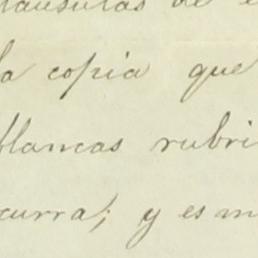 clausulas de e
la copia que
blancas rubri
curra; y es m